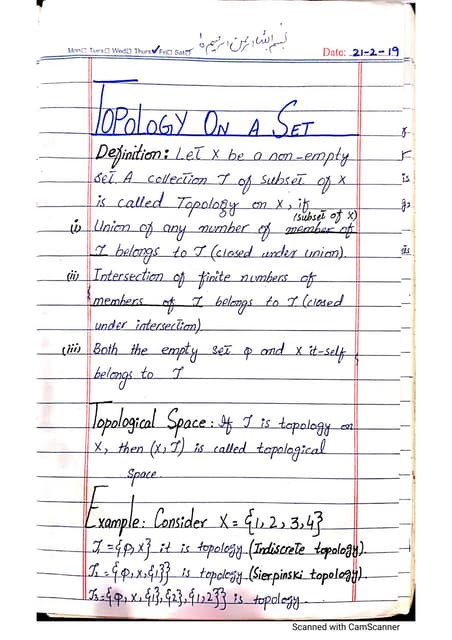 بسم اللہ الرحمن الرحیم
Mon□ Tues□ Wed□ Thurs✓ Fri□ Sat□ Date: 21-2-19
TOPOLOGY ON A SET
Definition: Let X be a non-empty
set. A collection T of subset of X
is called Topology on X, if
(subset of X)
(i) Union of any number of member of
T belongs to T (closed under union).
(ii) Intersection of finite numbers of
members of T belongs to T (closed
under intersection)
(iii) Both the empty set φ and X it-self
belongs to T
Topological Space: If T is topology on
X, then (X, T) is called topological
Space.
Example: Consider X = {1, 2, 3, 4}
T₁ = {φ, X} it is topology. (Indiscrete topology).
T₂ = {φ, X, {1}} is topology. (Sierpinski topology).
T₃ = {φ, X, {1}, {2}, {1, 2}} is topology.
Scanned with CamScanner